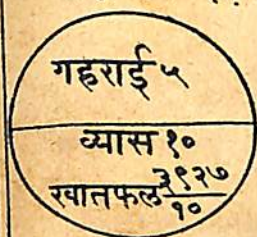 गहराई ५
व्यास १०
खातफल ३९२७
१०